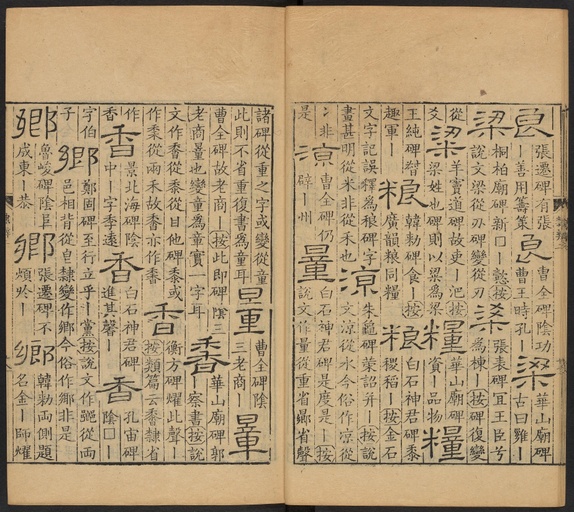 良 張遷碑有張｜善用籌策 良 曹全碑陰功曹王時孔｜ 梁 華山廟碑古曰雝｜
梁 桐柏廟碑新□｜愨按說文梁從刅碑變從刃 梁 張表碑宜王臣兮為棟｜按碑復變
從羊賣道碑故吏｜汜按爻 梁 梁姓也碑則以梁為梁 糧 華山廟碑資｜品物 糧
王純碑督趣軍｜ 粮 韓勑碑食｜按廣韻粮同糧 粮 白石神君碑黍稷稻｜按金石
文字記誤釋為稂碑字畫甚明從米非從禾也 凉 朱龜碑葉詔并｜按說文涼從水今俗作凉從
冫非是 涼 曹全碑仍辟｜州 量 白石神君碑是度是｜按說文作量從重省曏省聲
諸碑從重之字或變從童此則不省重復書為童耳 量 曹全碑陰三老商｜ 量
曹全碑故老商｜按此即碑陰三老商量也變童為童實一字耳 香 華山廟碑郭｜察書按說
文作香從黍從甘他碑黍或作黍從兩禾故香亦作香 香 衡方碑燿此聲｜按類篇云香隸省
作香 香 景北海碑陰中｜字季遠 香 白石神君碑進其馨｜ 香 孔宙碑陰□｜
字伯子 鄉 鄭固碑至行立乎｜黨按說文作從兩邑相背從皀隸變作鄉今俗作鄉非是
鄉 魯峻碑陰阜成東｜恭 鄉 張遷碑不煩於｜ 鄉 韓勑兩側題名金｜師燿